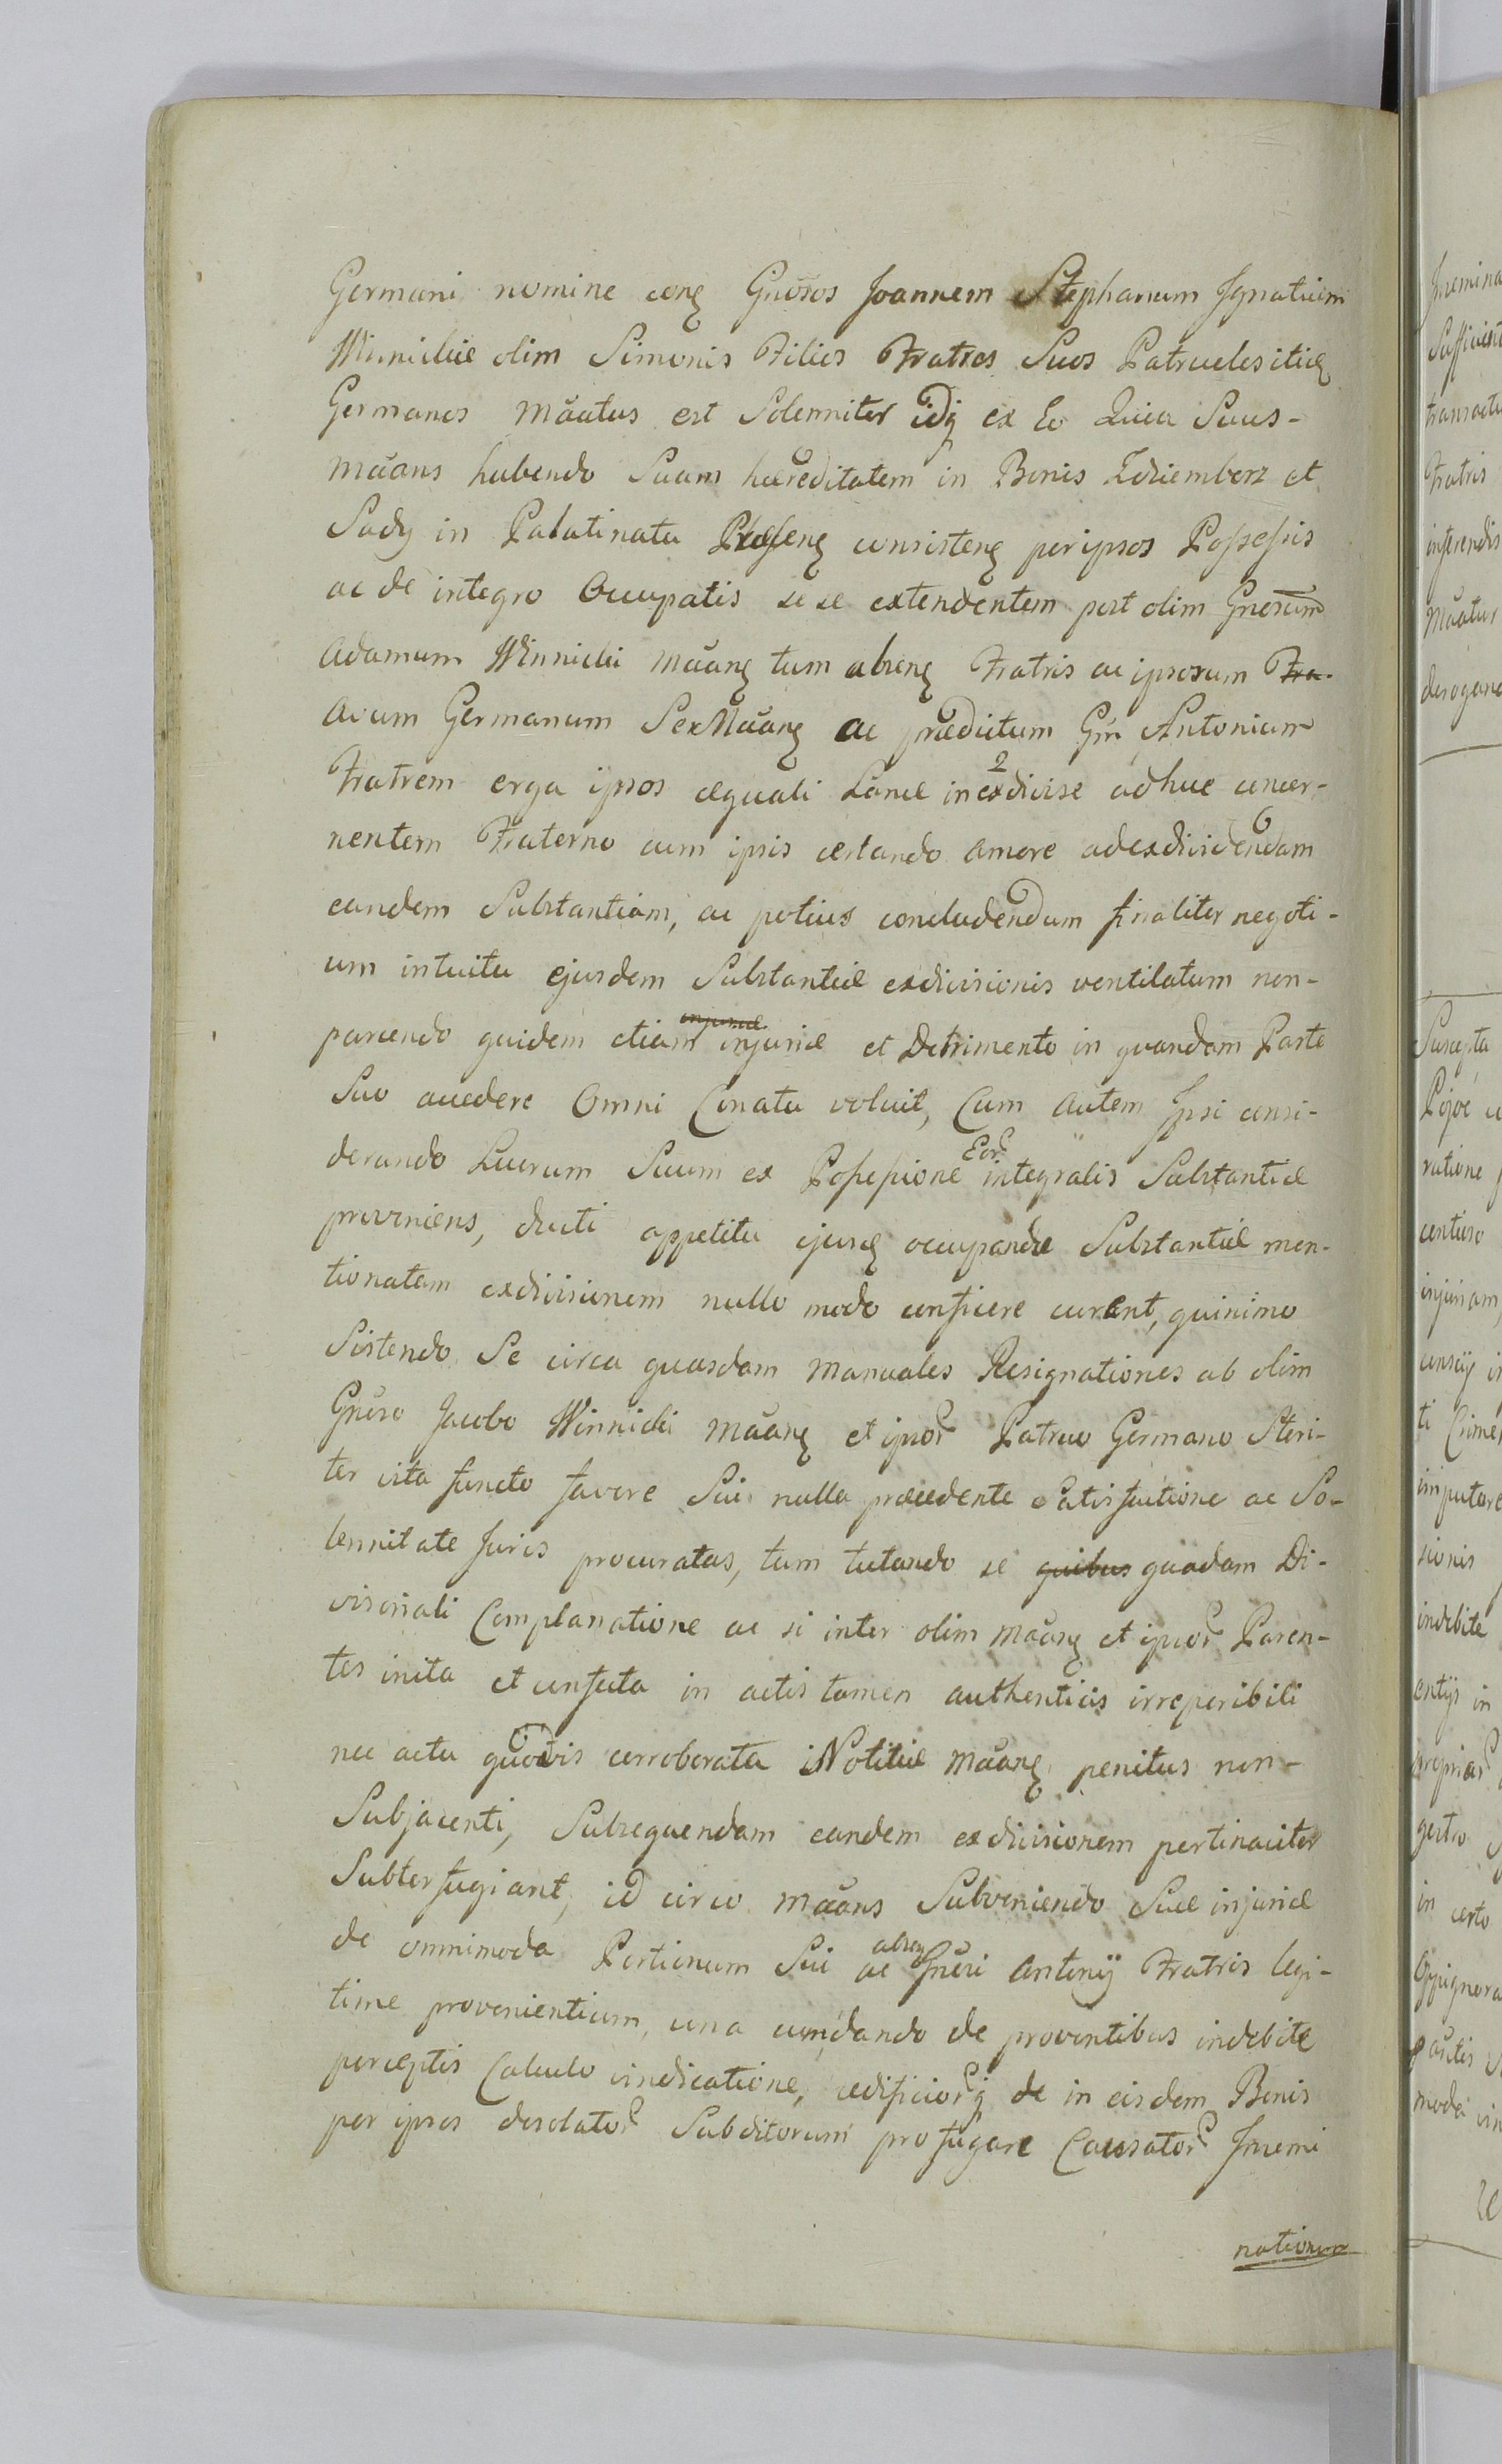 Germani nomine conq Gnosos Joannem Stephanum Ignatium
Winnickie olim Simonis Filios Fratres Suos Patrueles itiq
Germanos Māatus est Solenniter idq ex Eo Quia Suus-
māans habendo Suam hæreditatem in Bonis Zdziemborz et
Sady in Palatinatu consistenq per ipsos Possessis
ac de integro Occupatis se se extendentem post olim Gnosum
Adamum Winnicki māanq tum absenq Fratris ac ipsorum Fra-
Avum Germanum Sermāanq ac prædictum Gm Antonium
Fratrem erga ipsos æquali Lance inexdivise adhuc concer-
nentem Fraterno cum ipsis certando amore ad exdividendam
eandem Substantiam, ac potius concludendum finaliter negoti-
um intuitu ejusdem Substantiæ exdivisionis ventilatum non-
parcendo quidem etiam injuriæ et Detrimento in quandam Parte
Suo accedere Omni Conatu voluit, Cum Autem Ipsi consi-
derando Lucrum Suum ex Possessione Eor integralis Substantiæ
proveniens, ducti appetitu ejusq occupandæ Substantiæ men-
tionatam exdivisionem nullo modo conficere curent, quinimo
Sistendo Se circa quasdam Manuales Resignationes ab olim
Gnoso Jacobo Winnicki Māanq et ipsor Patruo Germano Steri-
ter vita functo favore Sui nulla præcedente Satisfactione ac So-
lennitate Juris procuratas, tum tutando se quibus quadam Di-
visionali Complanatione ac si inter olim Māanq et ipsor Paren-
tes inita et confecta in actis tamen authenticis irreperibili
nec actu quovis corroborata Notitiæ Māanq penitus non-
Subjacenti, Subsequendam eandem exdivisionem pertinaciter
Subterfugiant, id circo māans Subveniendo Suæ injuriæ
de omnimoda Portionum Sui ac absenq Gnosi Antonij Fratris legi-
time provenientium, una cum dando de proventibus indebite
perceptis Calculo vindicatione, ædificiorq de in eisdem Bonis
per ipsos desolator Subditorum profugare Causator Inemi
nationum